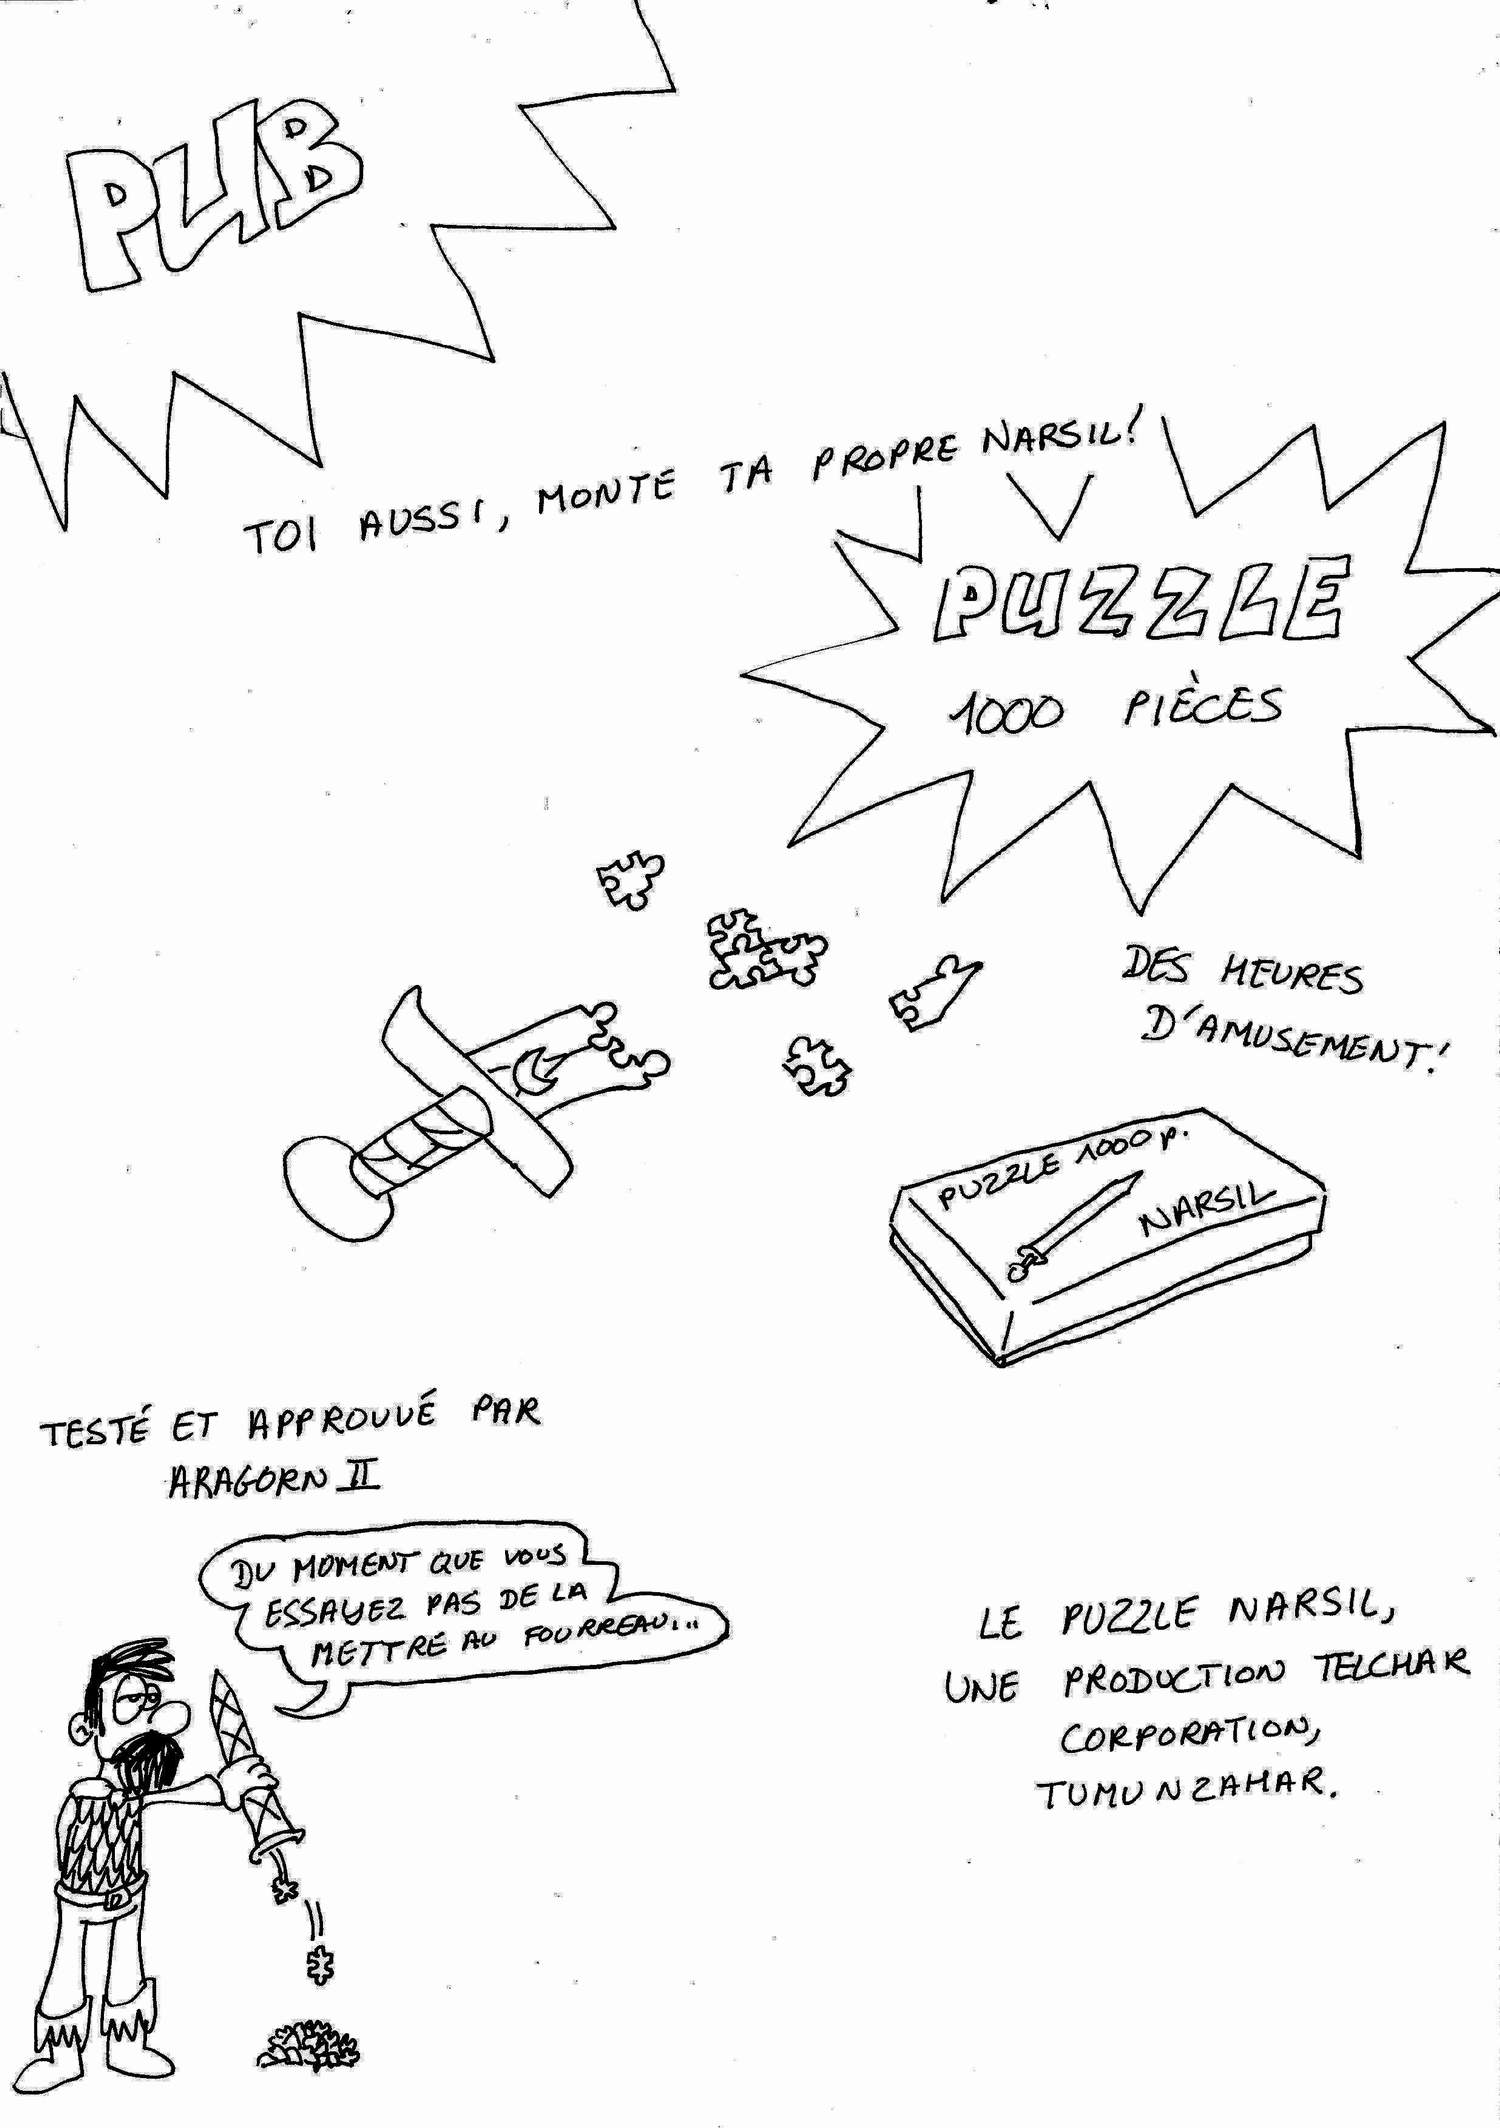 PUB
TOI AUSSI, MONTE TA PROPRE NARSIL!
PUZZLE
1000 PIÈCES
DES HEURES
D'AMUSEMENT!
PUZZLE 1000 P.
NARSIL
TESTÉ ET APPROUVÉ PAR
ARAGORN II
DU MOMENT QUE VOUS
ESSAYEZ PAS DE LA
METTRE AU FOURREAU...
LE PUZZLE NARSIL,
UNE PRODUCTION TELCHAR
CORPORATION,
TUMUNZAHAR.